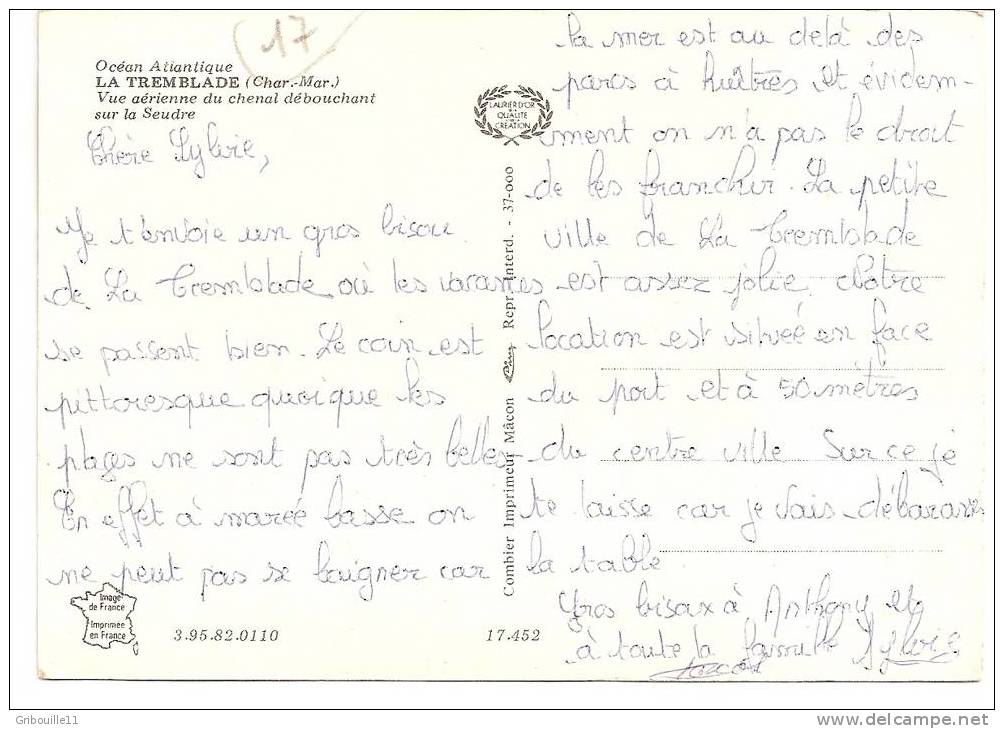 17
Océan Atlantique
LA TREMBLADE (Char.-Mar.)
Vue aérienne du chenal débouchant
sur la Seudre
Chère Sylvie,
Je t'envoie un gros bisou
de La Tremblade où les vacances
se passent bien. Le coin est
pittoresque quoique les
plages ne sont pas très belles.
En effet à marée basse on
ne peut pas se baigner car
Image
de France
Imprimée
en France
3.95.82.0110
17.452
LAURIER D'OR
DE LA
QUALITÉ
CRÉATION
Combier Imprimeur Mâcon
Repr. Interd. - 37-000
la mer est au delà des
parcs à huîtres et évidem-
ment on n'a pas le droit
de les franchir. La petite
ville de La Tremblade
est assez jolie. Notre
location est située en face
du port et à 50 mètres
du centre ville Sur ce je
te laisse car je vais débarasser
la table
Gros bisax à Anthony et
à toute la famille Sylvie
Gribouille11
www.delcampe.net